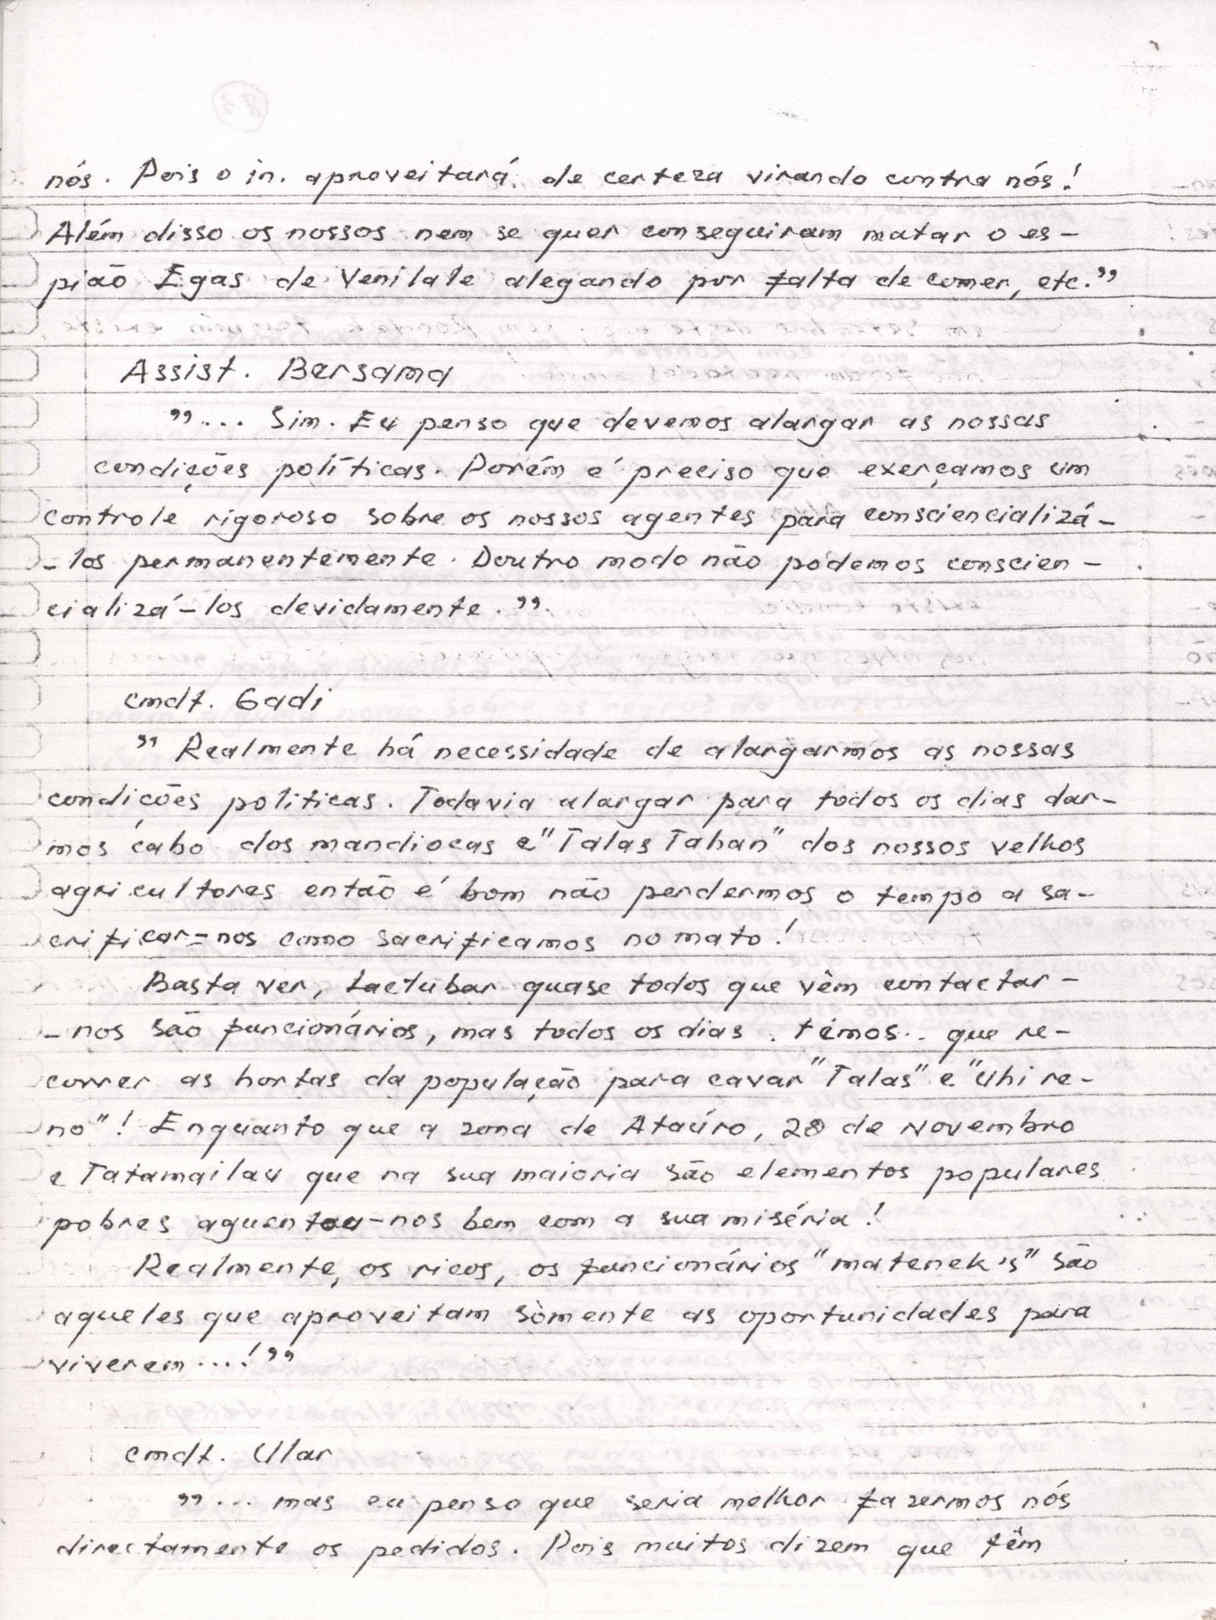 nós. Pois o in. aproveitará de certeza virando contra nós!
Além disso os nossos nem se quer conseguiram matar o es-
pião Egas de Venilale alegando por falta de comer, etc.”
Assist. Bersama
”... Sim. Eu penso que devemos alargar as nossas
condições políticas. Porém é preciso que exerçamos um
controle rigoroso sobre os nossos agentes para consciencializá-
-los permanentemente. Doutro modo não podemos conscien-
cializá-los devidamente.”
cmdt. Gadi
” Realmente há necessidade de alargarmos as nossas
condições políticas. Todavia alargar para todos os dias dar-
mos cabo dos mandiocas e "Talas Tahan" dos nossos velhos
agricultores então é bom não perdermos o tempo a sa-
crificar-nos como sacrificamos no mato!
Basta ver, Laclubar quase todos que vêm contactar-
-nos são funcionários, mas todos os dias temos que re-
correr as hortas da população para cavar "Talas" e "Uhi re-
no"! Enquanto que a zona de Ataúro, 28 de Novembro
e Tatamailau que na sua maioria são elementos populares
pobres aguentou-nos bem com a sua miséria!
Realmente, os ricos, os funcionários "matenek's" são
aqueles que aproveitam sòmente as oportunidades para
viverem...!”
cmdt. Ular
”... mas eu penso que seria melhor fazermos nós
directamente os pedidos. Pois muitos dizem que têm